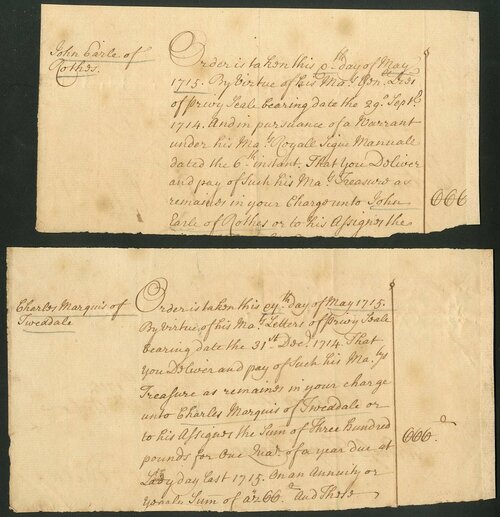 John Earle of
Rothes.
Order is taken this day of May
1715. By Virtue of his Ma.ts Gen.l Lres
of Privy Seale bearing date the 29.o Sept.r
1714. And in pursuance of a Warrant
under his Ma.ts Royale Signe Manuale
dated the 6.th instant. That You Deliver
and pay of Such his Ma.ts Treasure as
remaines in your Charge unto John
Earle of Rothes or to his Assignes the
666
Charles Marquis of
Tweddale
Order is taken this day of May 1715.
By Virtue of his Ma.ts Letters of Privy Seale
bearing date the 31.st Dec.r 1714. That
you Deliver and pay of Such his Ma.ts
Treasure as remaines in your charge
unto Charles Marquis of Tweddale or
to his Assignes the Sum of Three Hundred
pounds for One Quar of a year due at
Lady day last 1715. On an Annuity or
Sum of And These
666